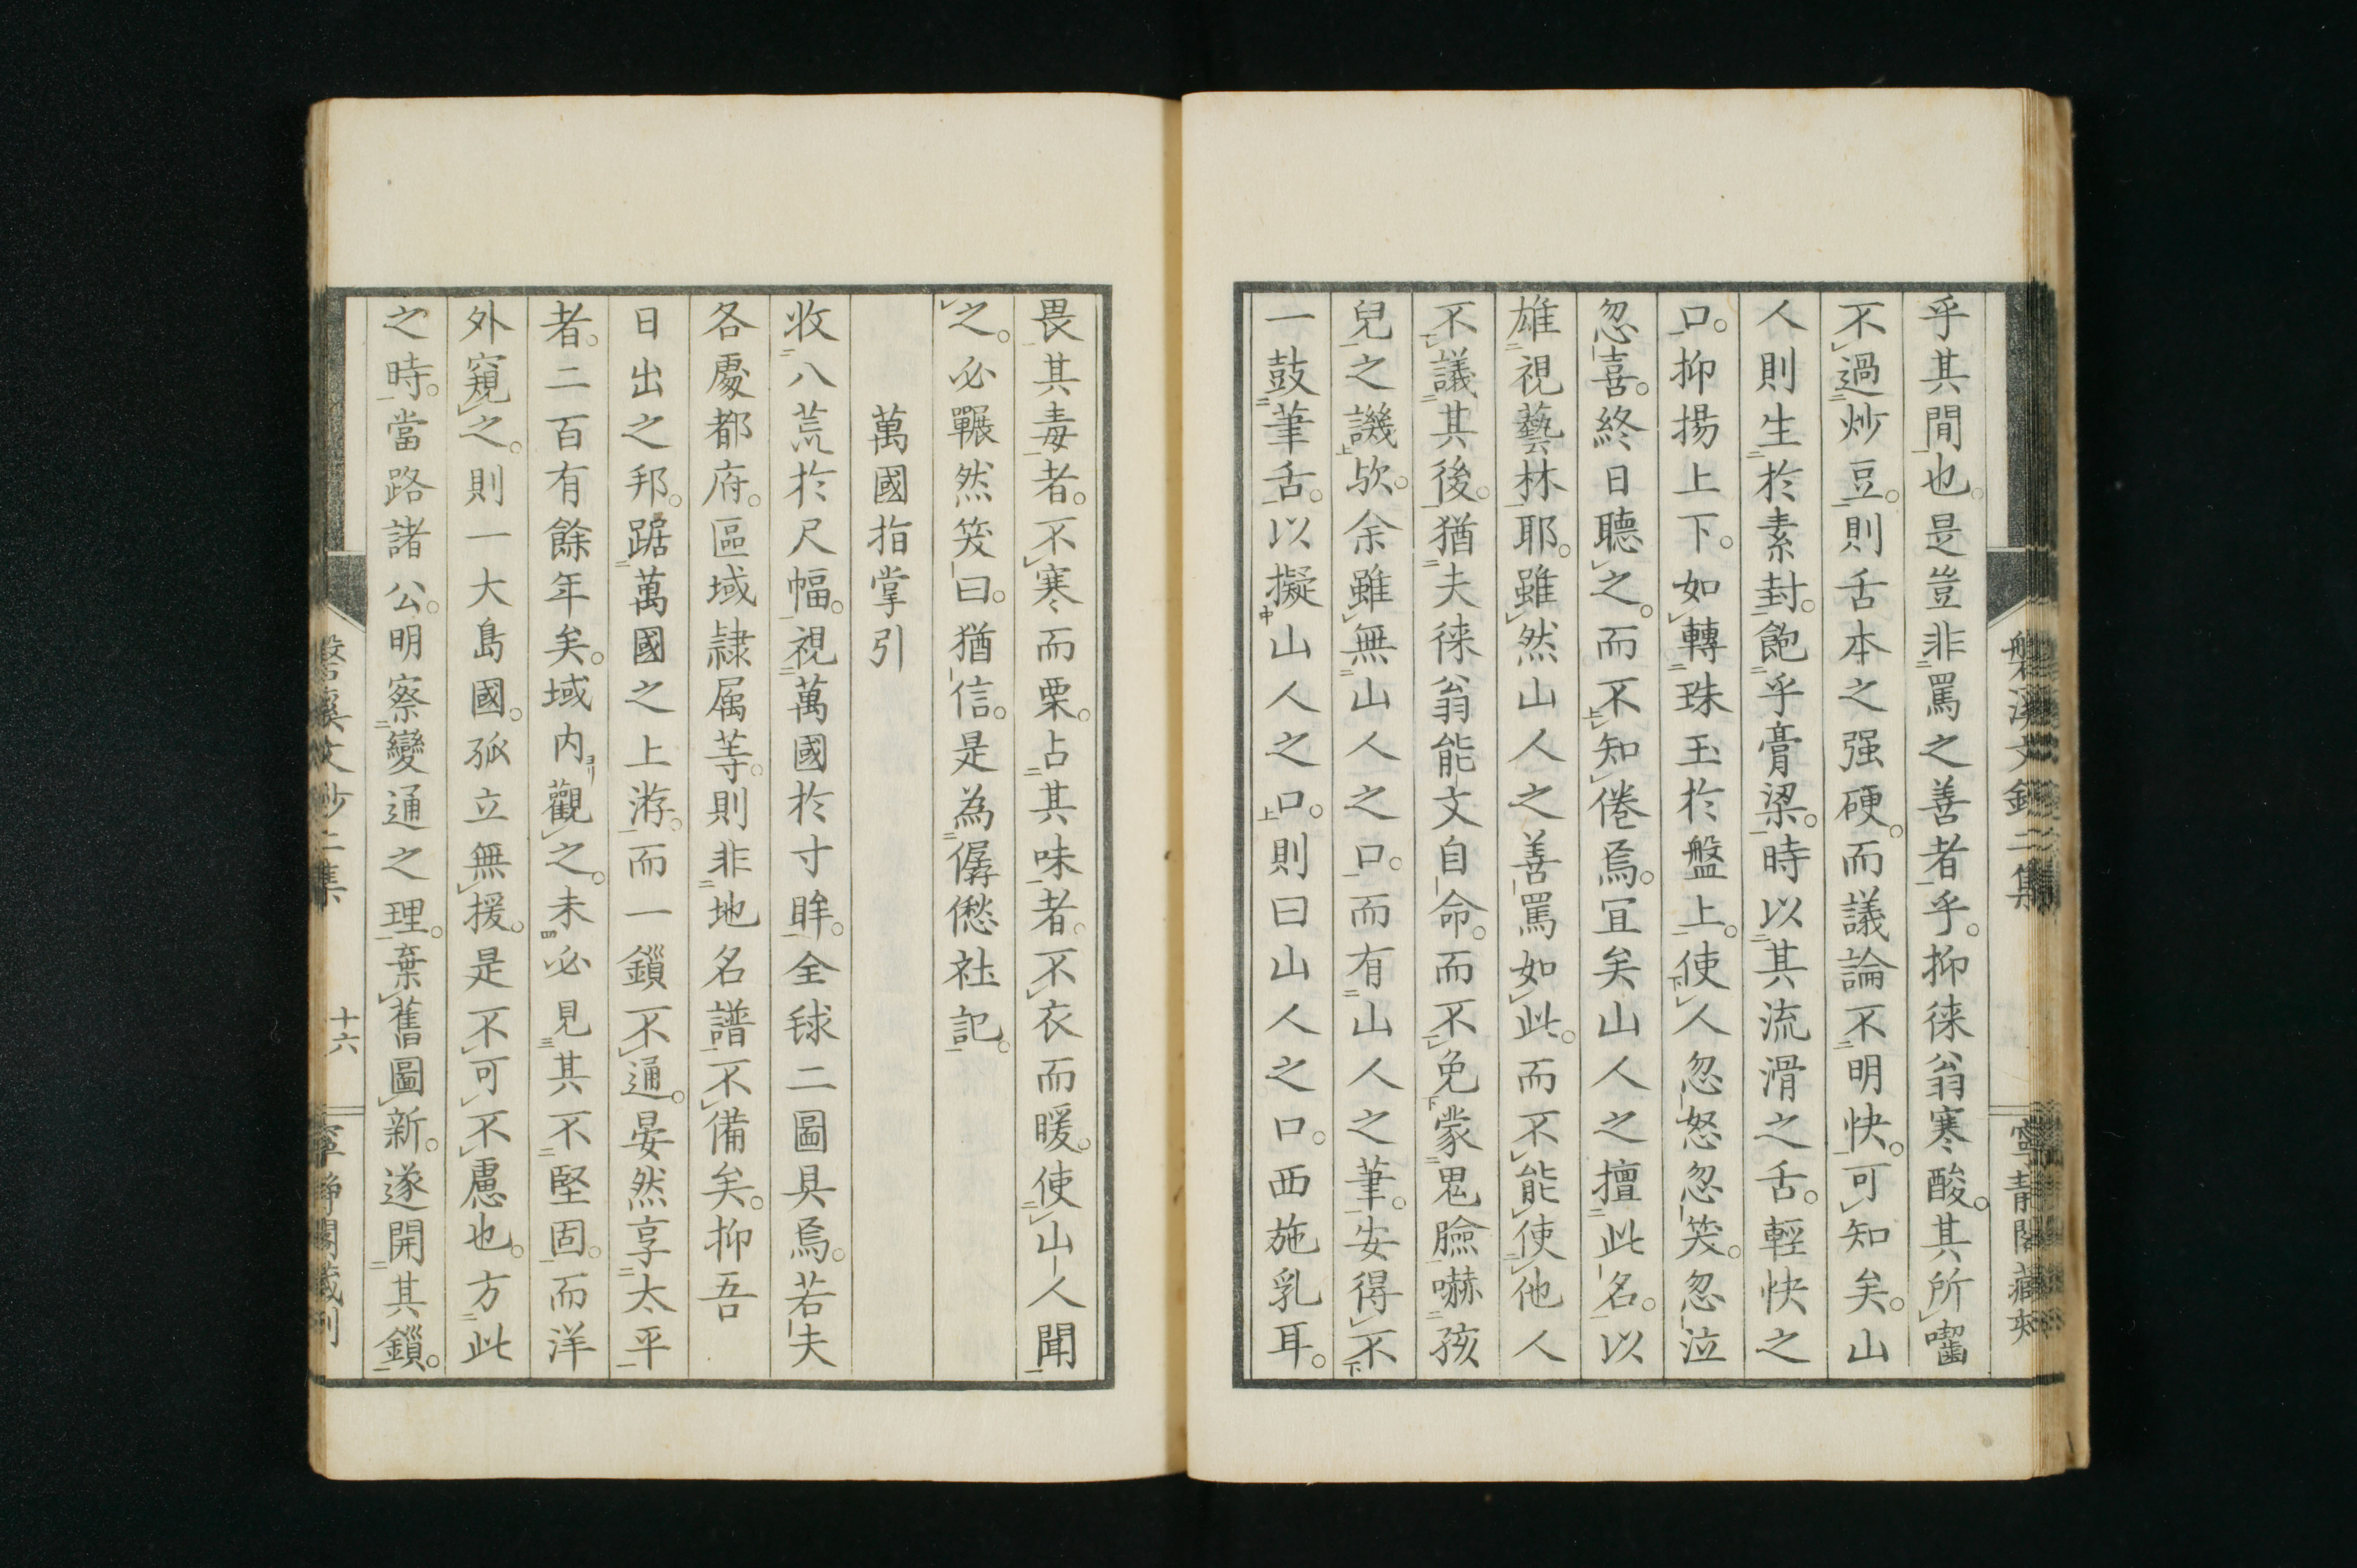 乎其間也。是豈非罵之善者乎。抑徠翁寒酸。其所囓
不過炒豆。則舌本之强硬。而議論不明快。可知矣。山
人則生於素封。飽乎膏粱。時以其流滑之舌。輕快之
口。抑揚上下。如轉珠玉於盤上。使人忽怒忽笑。忽泣
忽喜。終日聽之。而不知倦焉。宜矣山人之擅此名。以
雄視藝林耶。雖然山人之善罵如此。而不能使他人
不議其後。猶夫徠翁能文自命。而不免蒙鬼臉嚇孩
兒之譏歟。余雖無山人之口。而有山人之筆。安得不
一鼓筆舌。以擬山人之口。則曰山人之口。西施乳耳。
畏其毒者。不寒而栗。占其味者。不衣而暖。使山人聞
之。必冁然笑曰。猶信。是為僝僽社記。
萬國指掌引
收八荒於尺幅。視萬國於寸眸。全球二圖具焉。若夫
各處都府。區域隷属等。則非地名譜不備矣。抑吾
日出之邦。踞萬國之上游。而一鎖不通。晏然享太平
者。二百有餘年矣。域内ヨリ觀之。未必見其不堅固。而洋
外窺之。則一大島國。孤立無援。是不可不慮也。方此
之時。當路諸公。明察變通之理。棄舊圖新。遂開其鎖。
十六